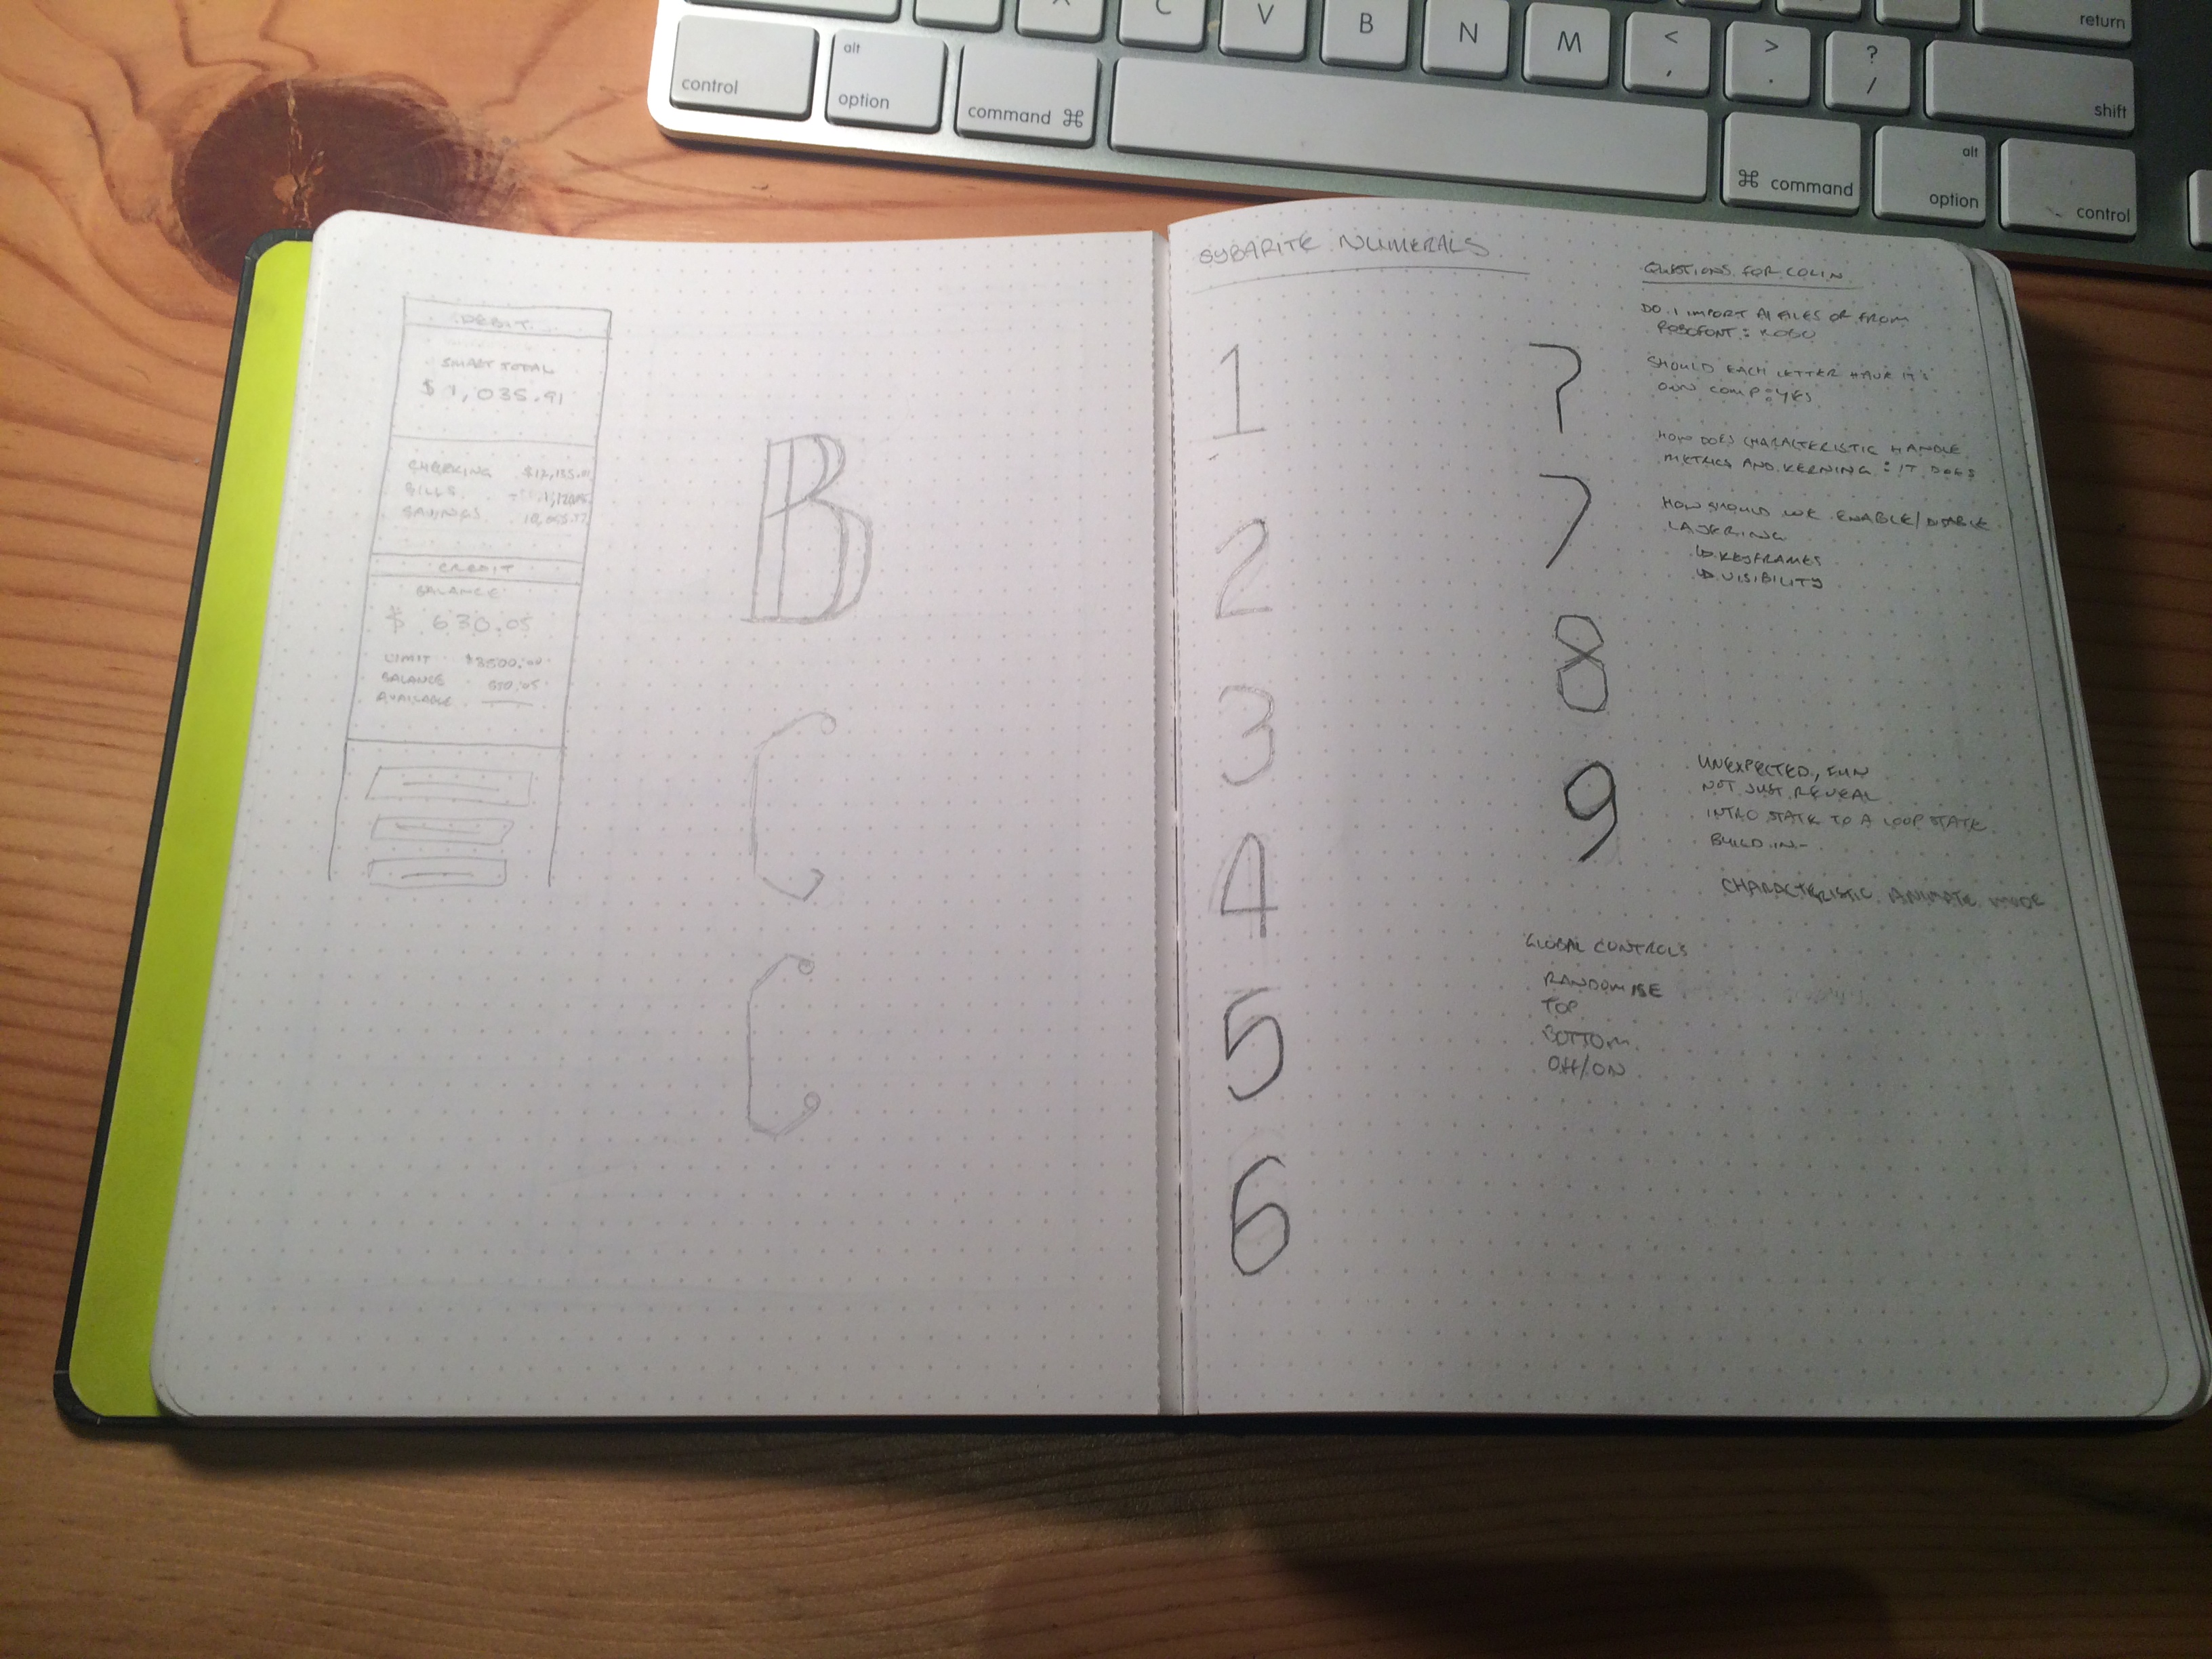 return
X C V B N M < , > . ? / shift
control alt option command ⌘ ⌘ command alt option control
DEBIT
SMART TOTAL
$ 1,035.91
CHECKING
BILLS
SAVINGS
CREDIT
BALANCE
$ 630.05
LIMIT $3500.00
BALANCE
AVAILABLE
B
C
C
SYBARITE NUMERALS
1
2
3
4
5
6
7
7
8
9
QUESTIONS FOR COLIN
DO I IMPORT AI FILES OR FROM
ROBOFONT : ROBO
SHOULD EACH LETTER HAVE IT'S
OWN COMP : YES
HOW DOES CHARACTERISTIC HANDLE
METRICS AND KERNING : IT DOES
HOW SHOULD WE ENABLE/DISABLE
LAYERING
↳ KEYFRAMES
↳ VISIBILITY
UNEXPECTED, FUN
NOT JUST REVEAL
INTRO STATE TO A LOOP STATE
BUILD IN -
CHARACTERISTIC ANIMATE MODE
GLOBAL CONTROLS
RANDOMISE
TOP
BOTTOM
OFF/ON